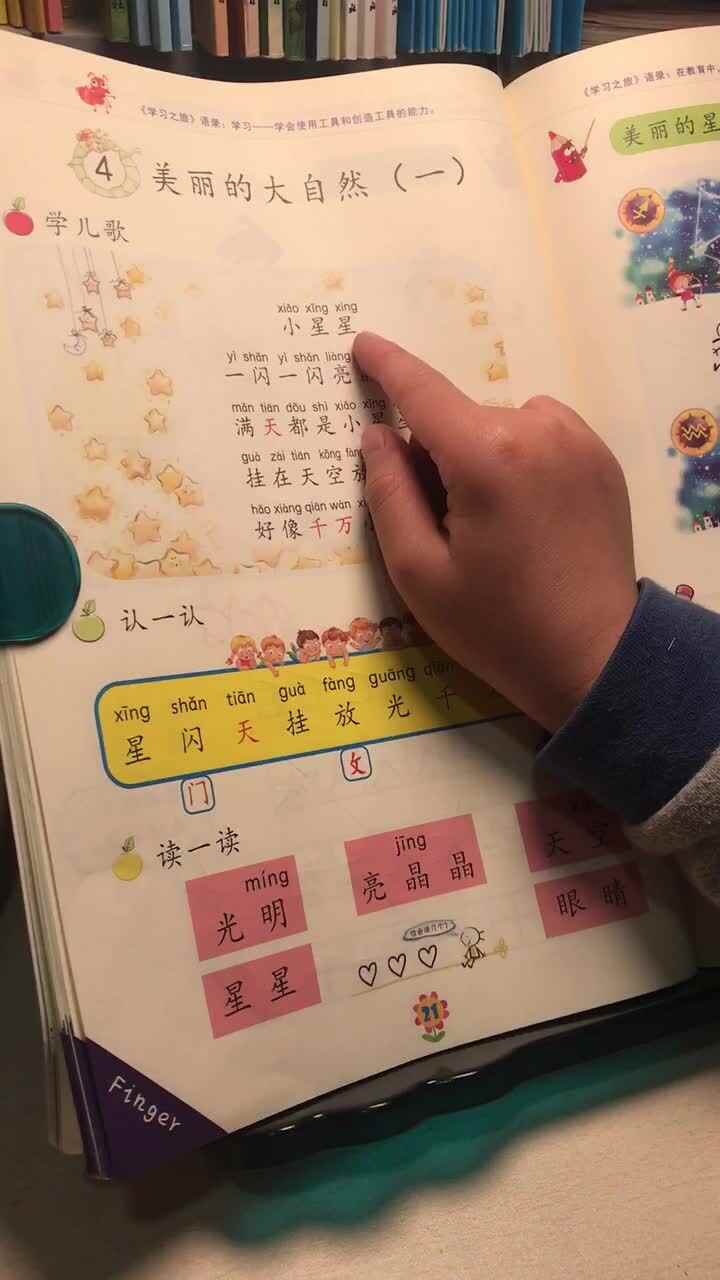 《学习之旅》语录：学习——学会使用工具和创造工具的能力。
4 美丽的大自然（一）
学儿歌
xiǎo xīng xing
小星星
yì shǎn yì shǎn liàng
一闪一闪亮
mǎn tiān dōu shì xiǎo xīng
满天都是小星
guà zài tiān kōng fàng
挂在天空放
hǎo xiàng qiān wàn
好像千万
认一认
xīng shǎn tiān guà fàng guāng qiān
星 闪 天 挂 放 光 千
门 攵
读一读
míng
光明
jīng
亮晶晶
天空
星星
眼睛
21
Finger
《学习之旅》语录：在教育中，
美丽的星